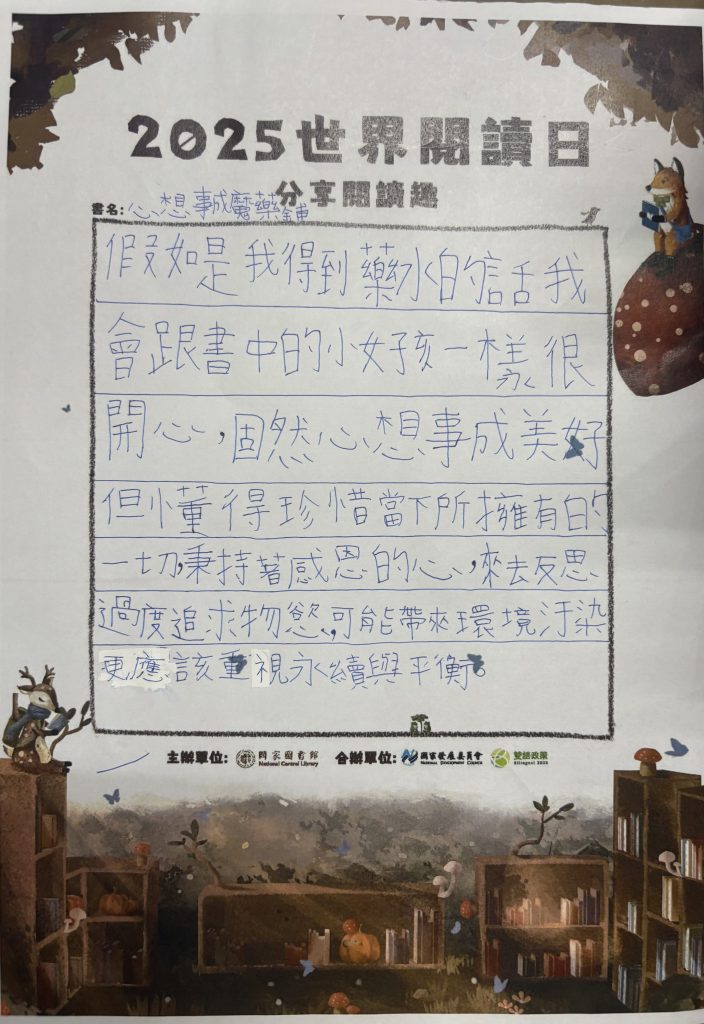 2025世界閱讀日
分享閱讀趣
書名:心想事成魔藥鋪
假如是我得到藥水的話我
會跟書中的小女孩一樣很
開心,固然心想事成美好
但懂得珍惜當下所擁有的
一切,秉持著感恩的心,來去反思
過度追求物慾,可能帶來環境汙染
更應該重視永續與平衡。
主辦單位: 國家圖書館 National Central Library 合辦單位: 國家發展委員會 NATIONAL DEVELOPMENT COUNCIL 雙語政策 Bilingual 2030